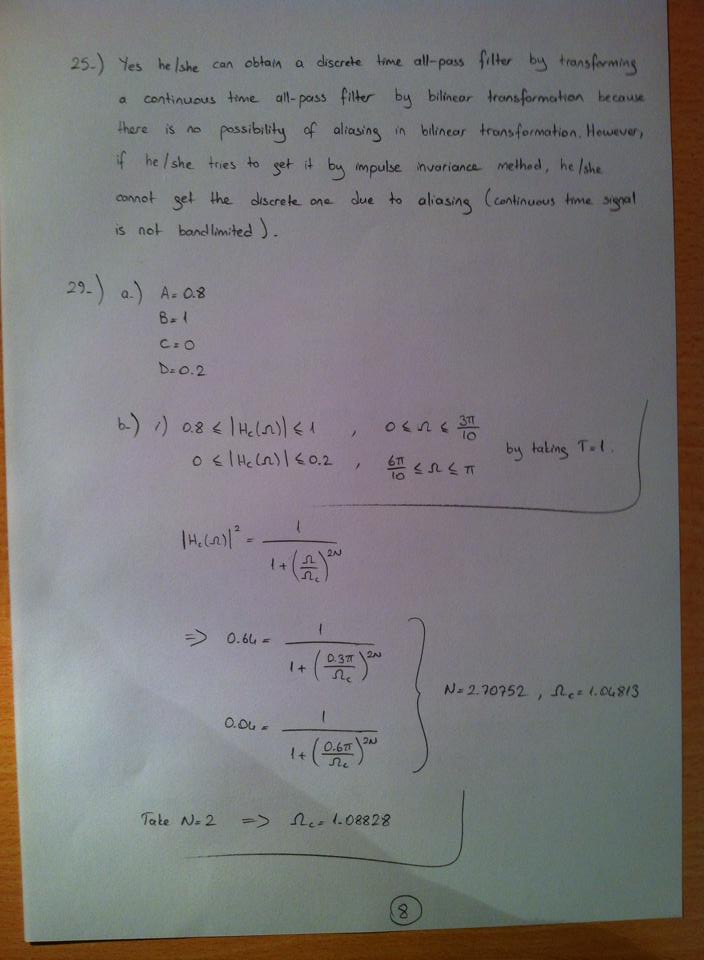 25-) Yes he/she can obtain a discrete time all-pass filter by transforming
a continuous time all-pass filter by bilinear transformation because
there is no possibility of aliasing in bilinear transformation. However,
if he/she tries to get it by impulse invariance method, he/she
cannot get the discrete one due to aliasing (continuous time signal
is not bandlimited).
29-) a-) A= 0.8
B= 1
C= 0
D= 0.2
b-) i) 0.8 ≤ |Hc(Ω)| ≤ 1 , 0 ≤ Ω ≤ 3π/10
0 ≤ |Hc(Ω)| ≤ 0.2 , 6π/10 ≤ Ω ≤ π by taking T=1.
|Hc(Ω)|² = 1 / (1 + (Ω/Ωc)^2N)
=> 0.64 = 1 / (1 + (0.3π/Ωc)^2N)
0.04 = 1 / (1 + (0.6π/Ωc)^2N) } N=2.70752 , Ωc=1.04813
Take N=2 => Ωc= 1.08828
8